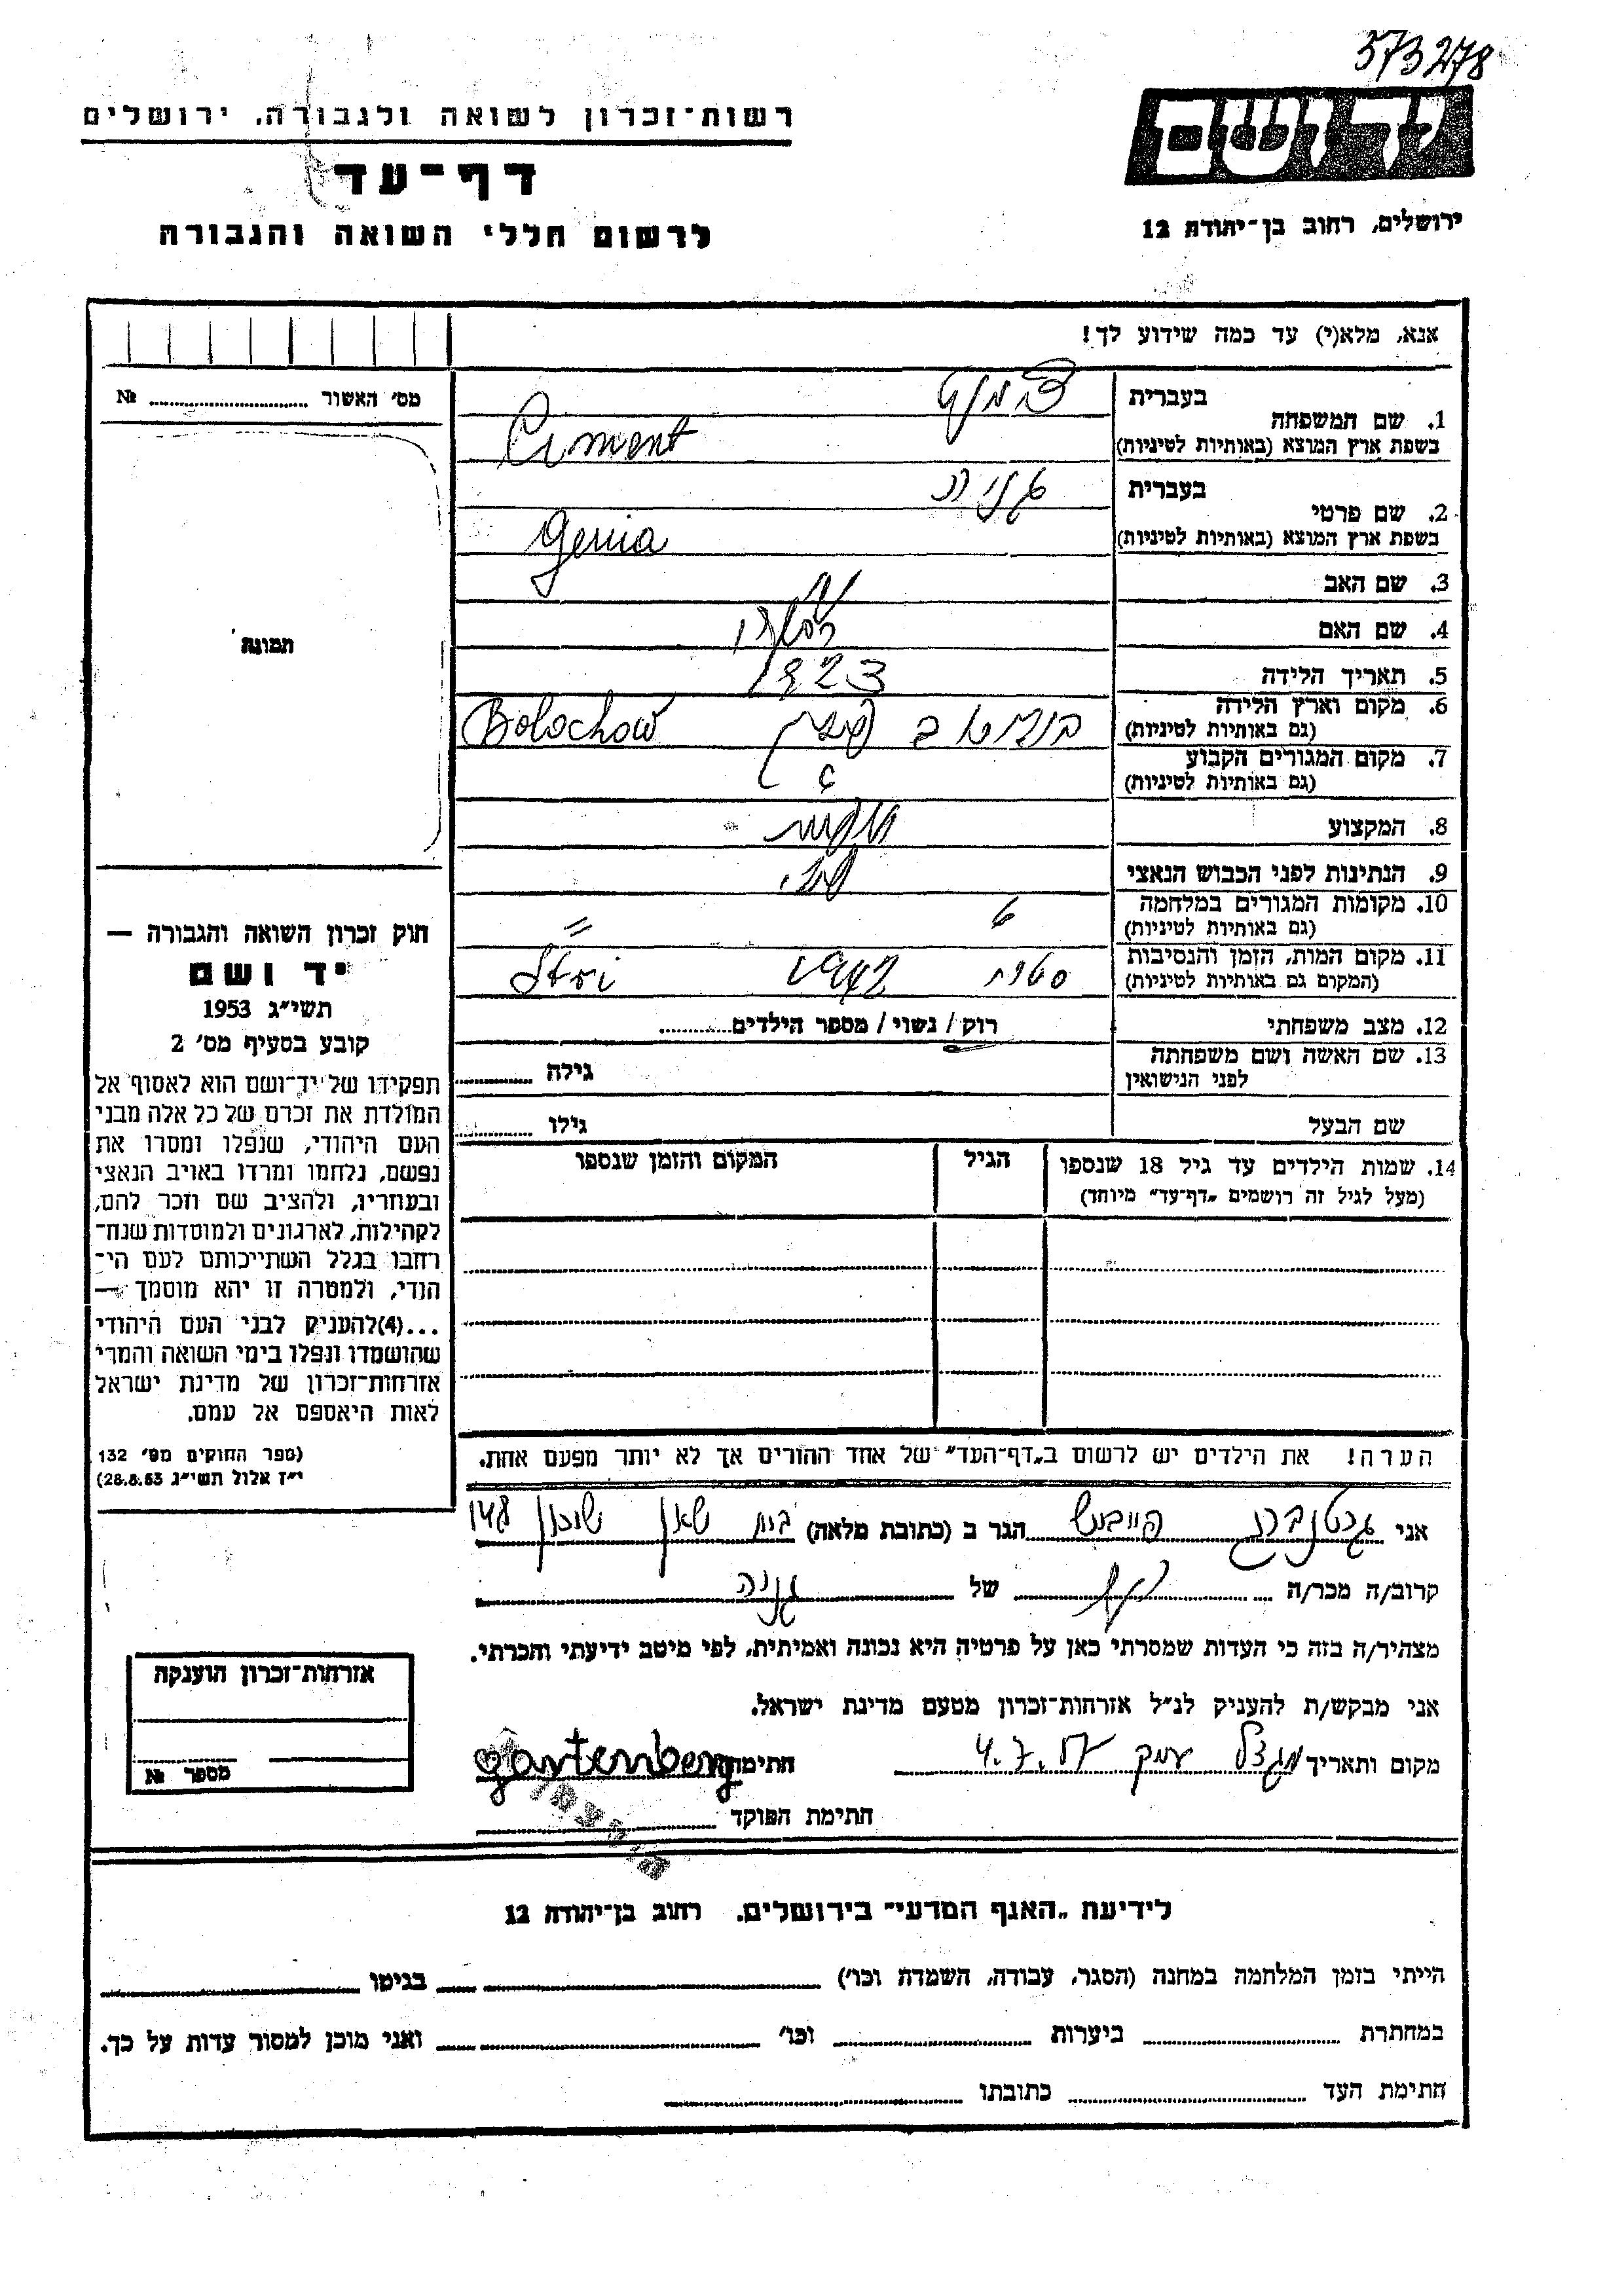 573278
יד ושם
ירושלים, רחוב בן־יהודה 12
רשות־זכרון לשואה ולגבורה, ירושלים
דף־עד
לרשום חללי השואה והגבורה
אנא, מלא(י) עד כמה שידוע לך!
מס׳ האשור № 
תמונה
בעברית
1. שם המשפחה
בשפת ארץ המוצא (באותיות לטיניות) Ciment
בעברית גניה
2. שם פרטי
בשפת ארץ המוצא (באותיות לטיניות) Genia
3. שם האב
4. שם האם
5. תאריך הלידה 1923
6. מקום וארץ הלידה Bolochow
(גם באותיות לטיניות)
7. מקום המגורים הקבוע
(גם באותיות לטיניות)
8. המקצוע
9. הנתינות לפני הכבוש הנאצי
10. מקומות המגורים במלחמה
(גם באותיות לטיניות)
11. מקום המות, הזמן והנסיבות 1942 Stri
(המקום גם באותיות לטיניות)
12. מצב משפחתי רוק / נשוי / מספר הילדים
13. שם האשה ושם משפחתה
לפני הנישואין גילה
שם הבעל גילו
14. שמות הילדים עד גיל 18 שנספו הגיל המקום והזמן שנספו
(מעל לגיל זה רושמים „דף־עד״ מיוחד)
הערה! את הילדים יש לרשום ב„דף־העד״ של אחד ההורים אך לא יותר מפעם אחת.
חוק זכרון השואה והגבורה —
יד ושם
תשי״ג 1953
קובע בסעיף מס׳ 2
תפקידו של יד־ושם הוא לאסוף אל
המולדת את זכרם של כל אלה מבני
העם היהודי, שנפלו ומסרו את
נפשם, נלחמו ומרדו באויב הנאצי
ובעוזריו, ולהציב שם וזכר להם,
לקהילות, לארגונים ולמוסדות שנח־
רבו בגלל השתייכותם לעם הי־
הודי, ולמטרה זו יהא מוסמך —
...(4)להעניק לבני העם היהודי
שהושמדו ונפלו בימי השואה והמרי
אזרחות־זכרון של מדינת ישראל
לאות היאספם אל עמם.
(ספר החוקים מס׳ 132
י״ז אלול תשי״ג 28.8.53)
אני גרטנברג הגר ב (כתובת מלאה) בית שאן שיכון
קרוב/ה מכר/ה של גניה
מצהיר/ה בזה כי העדות שמסרתי כאן על פרטיה היא נכונה ואמיתית, לפי מיטב ידיעתי והכרתי.
אני מבקש/ת להעניק לנ״ל אזרחות־זכרון מטעם מדינת ישראל.
מקום ותאריך מגדל עמק 4.7.57 חתימה gartenberg
חתימת הפוקד
אזרחות־זכרון הוענקה
מספר №
לידיעת „האגף המדעי״ בירושלים, רחוב בן־יהודה 12
הייתי בזמן המלחמה במחנה (הסגר, עבודה, השמדה וכו׳) בגיטו
במחתרת ביערות וכו׳ ואני מוכן למסור עדות על כך.
חתימת העד כתובתו